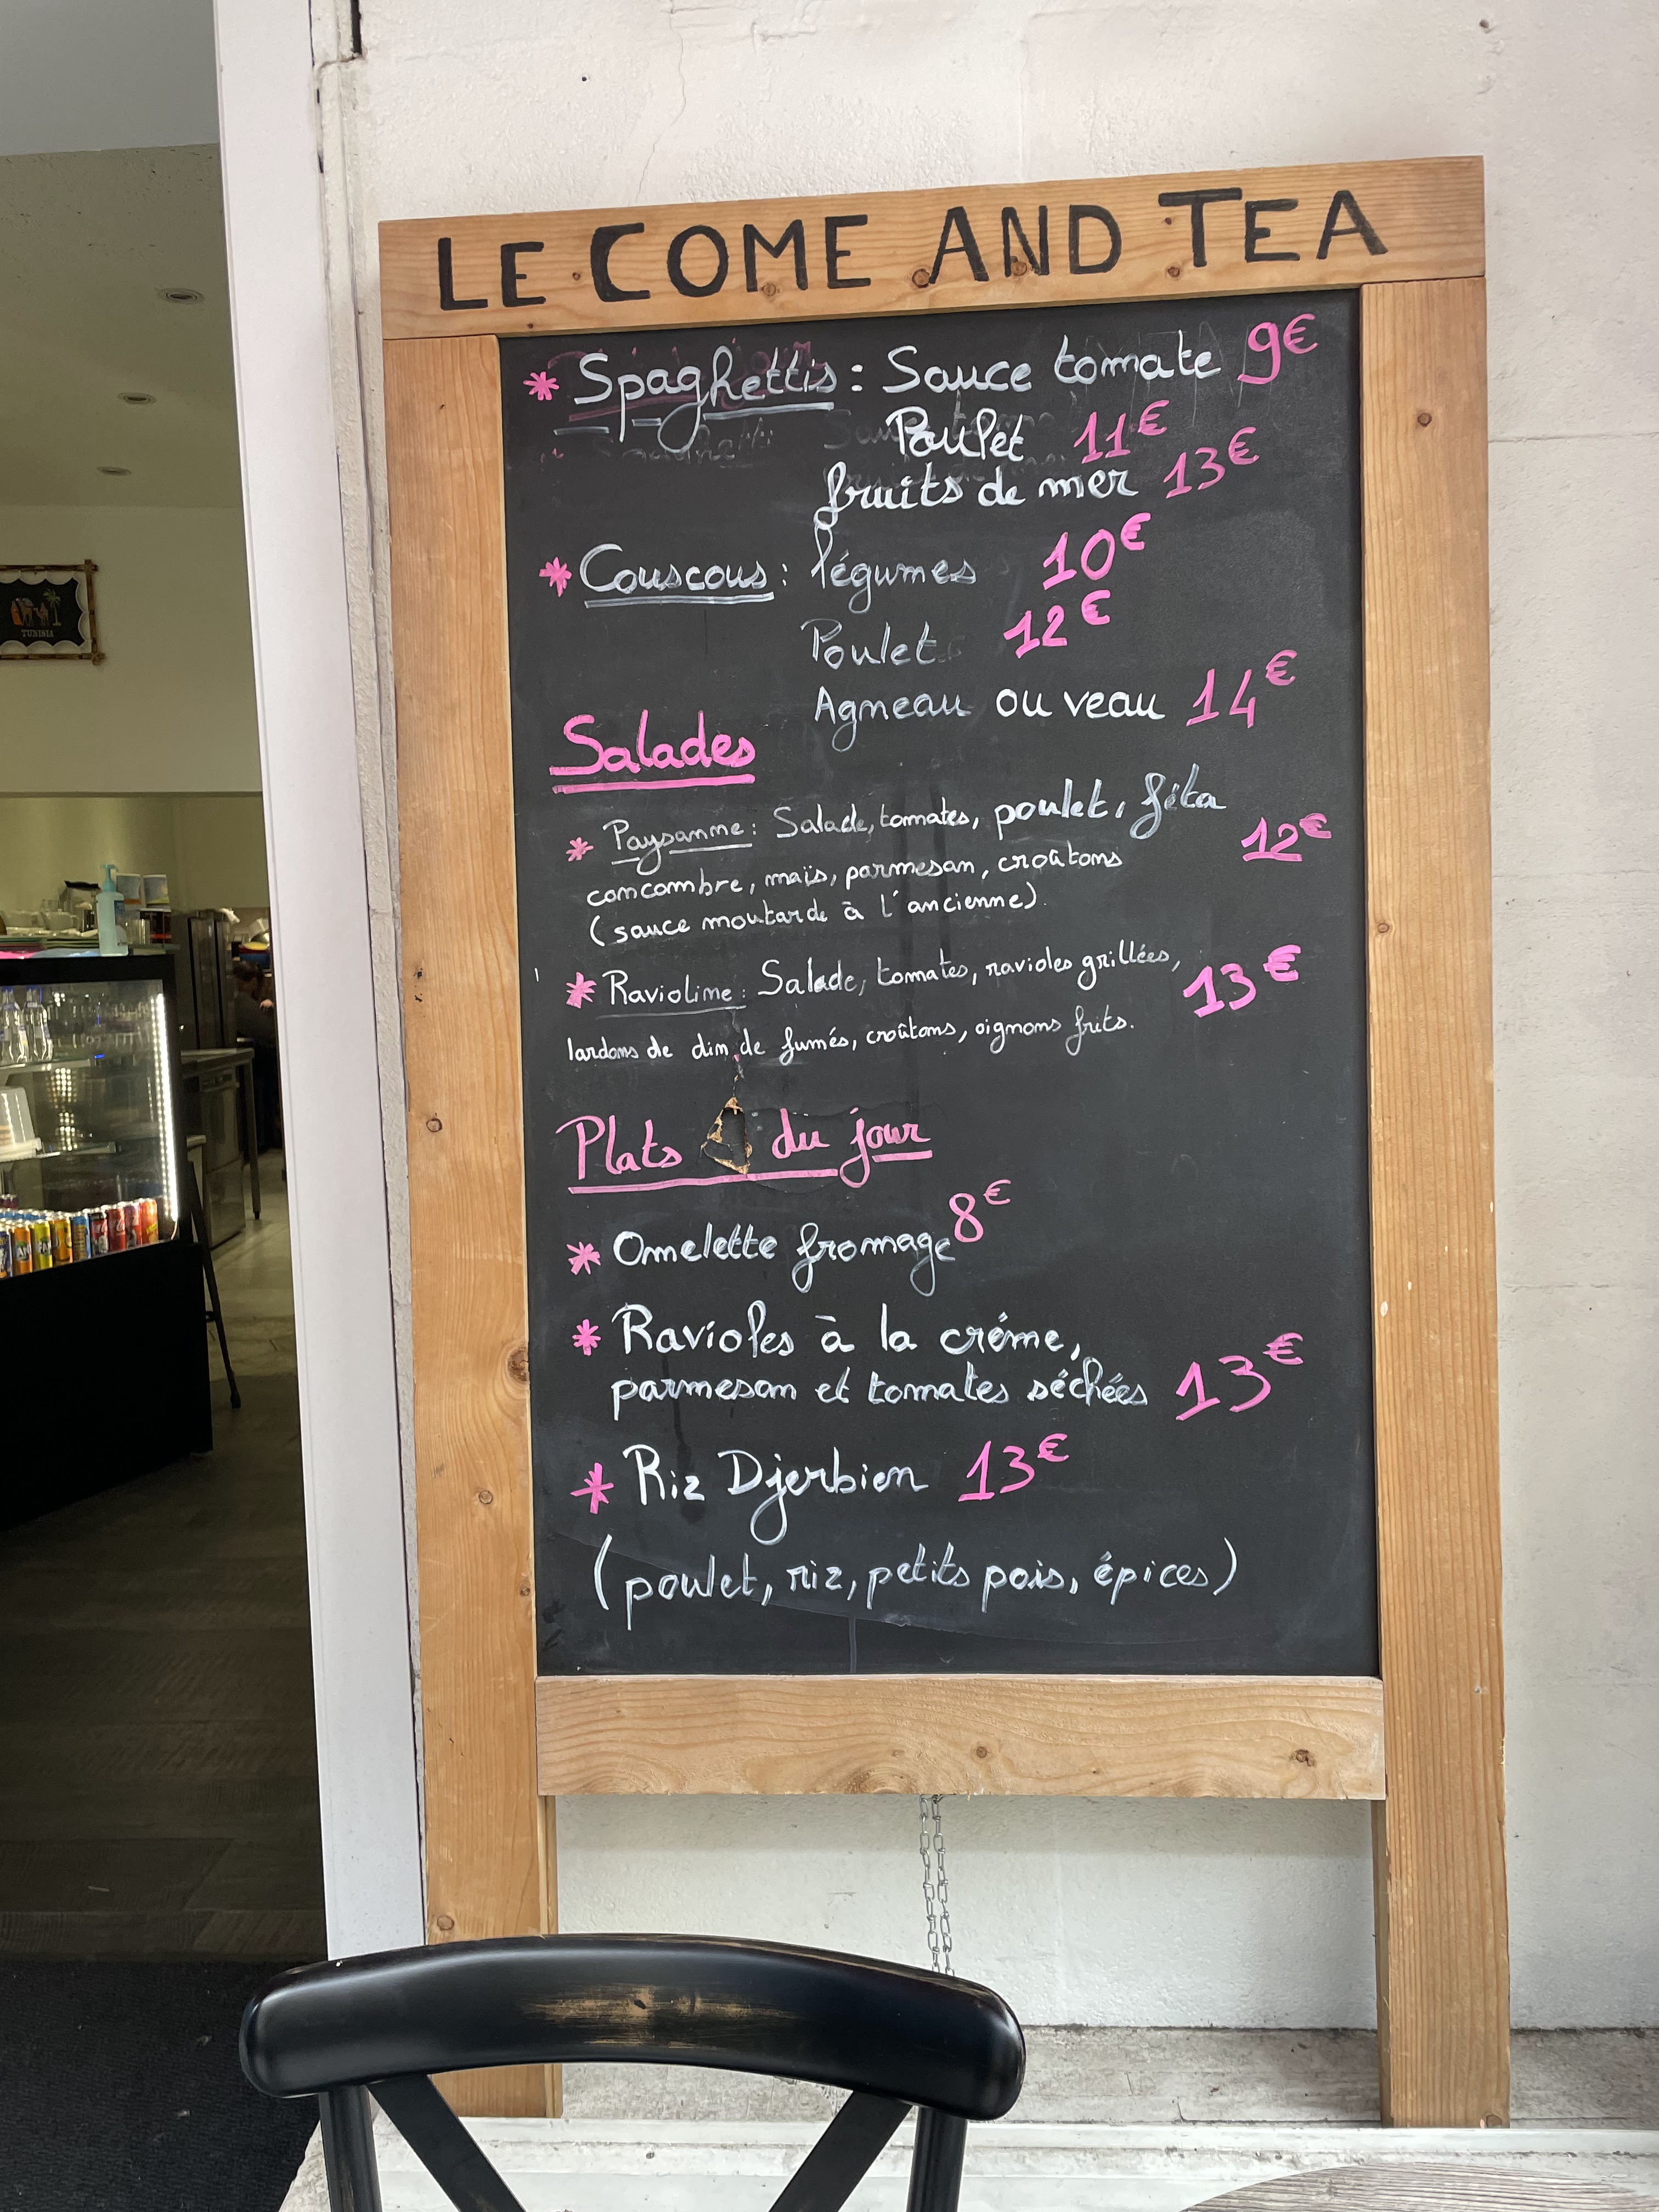 LE COME AND TEA
* Spaghettis : Sauce tomate 9€
Poulet 11€
fruits de mer 13€
* Couscous : légumes 10€
Poulet 12€
Agneau ou veau 14€
Salades
* Paysanne : Salade, tomates, poulet, féta
concombre, maïs, parmesan, croûtons 12€
(sauce moutarde à l'ancienne)
* Ravioline : Salade, tomates, ravioles grillées, 13€
lardons de dinde fumés, croûtons, oignons frits.
Plats du jour
* Omelette fromage 8€
* Ravioles à la créme,
parmesan et tomates séchées 13€
* Riz Djerbien 13€
(poulet, riz, petits pois, épices)
TUNISIA